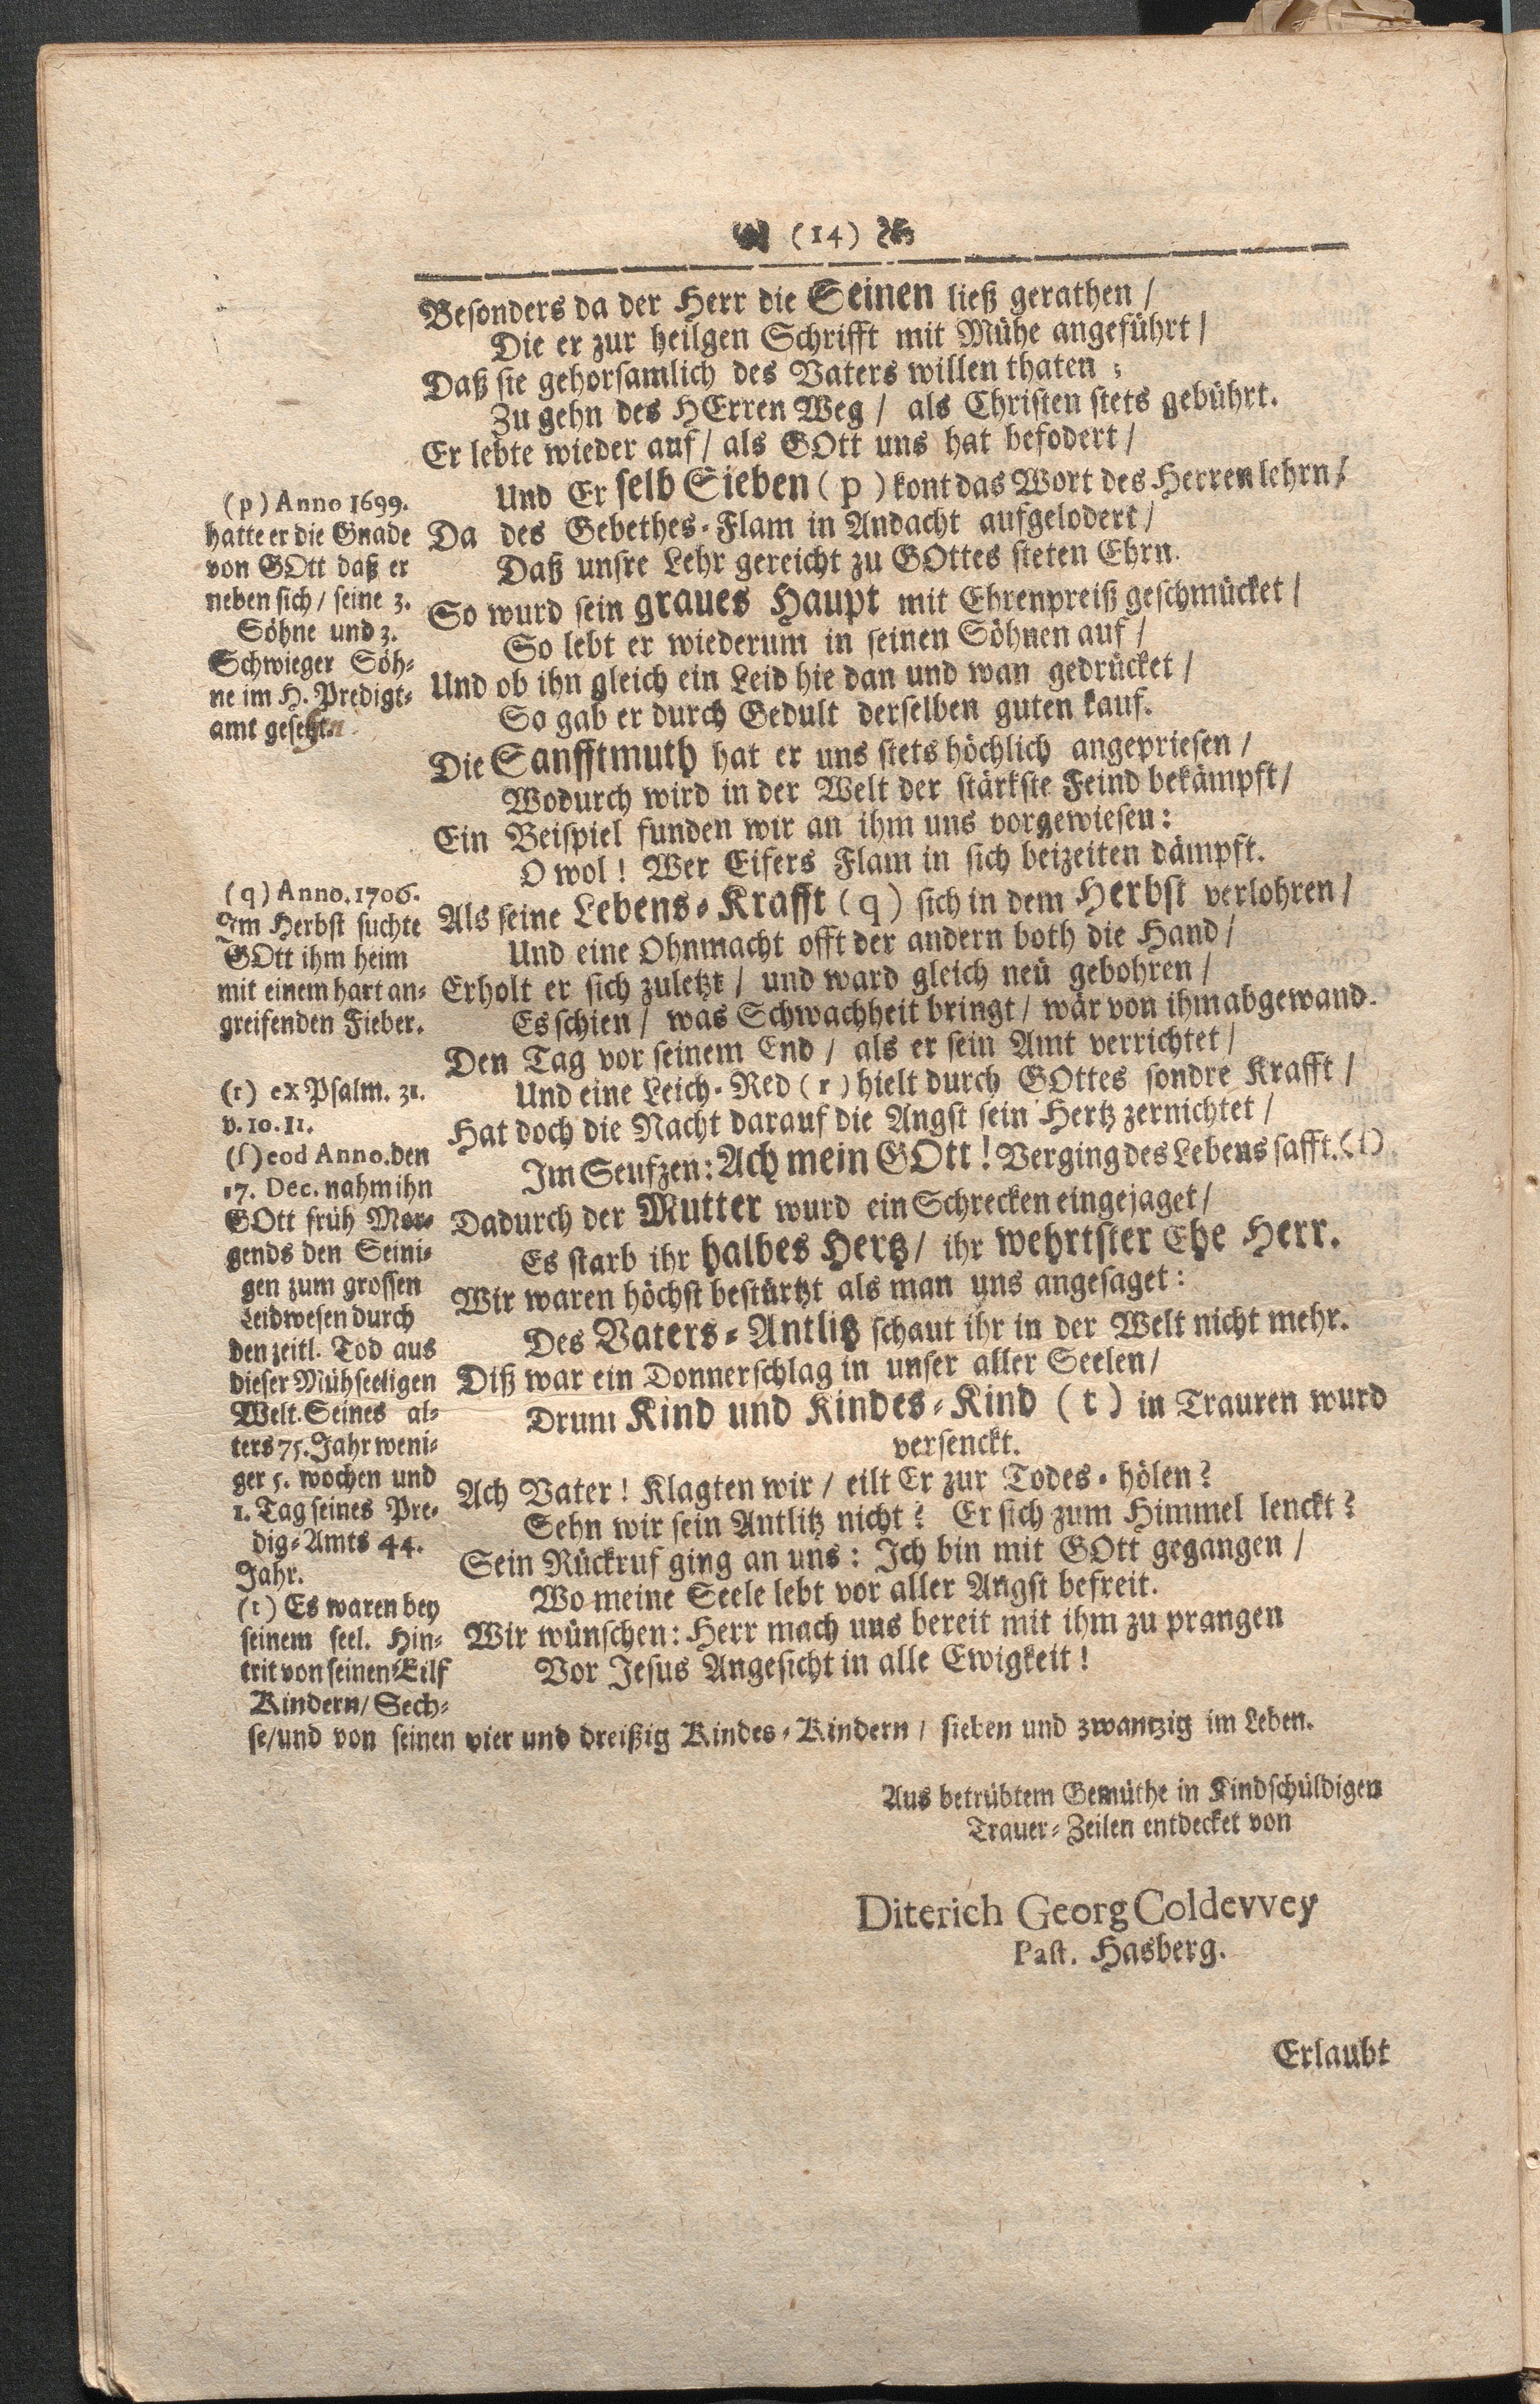 (14)
Besonders da der Herr die Seinen ließ gerathen /
Die er zur heilgen Schrifft mit Mühe angeführt /
Daß sie gehorsamlich des Vaters willen thaten ;
Zu gehn des HErren Weg / als Christen stets gebührt.
Er lebte wieder auf / als GOtt uns hat befodert /
Und Er selb Sieben ( p ) kont das Wort des Herren lehrn /
Da des Gebethes-Flam in Andacht aufgelodert /
Daß unsre Lehr gereicht zu GOttes steten Ehrn.
So wurd sein graues Haupt mit Ehrenpreiß geschmücket /
So lebt er wiederum in seinen Söhnen auf /
Und ob ihn gleich ein Leid hie dan und wan gedrücket /
So gab er durch Gedult derselben guten kauf.
Die Sanfftmuth hat er uns stets höchlich angepriesen /
Wodurch wird in der Welt der stärkste Feind bekämpft /
Ein Beispiel funden wir an ihm uns vorgewiesen :
O wol ! Wer Eifers Flam in sich beizeiten dämpft.
Als seine Lebens-Krafft ( q ) sich in dem Herbst verlohren /
Und eine Ohnmacht offt der andern both die Hand /
Erholt er sich zuletzt / und ward gleich neü gebohren /
Es schien / was Schwachheit bringt / wär von ihm abgewand.
Den Tag vor seinem End / als er sein Amt verrichtet /
Und eine Leich-Red ( r ) hielt durch GOttes sondre Krafft /
Hat doch die Nacht darauf die Angst sein Hertz zernichtet /
Im Seufzen: Ach mein GOtt ! Verging des Lebens safft. (ſ)
Dadurch der Mutter wurd ein Schrecken eingejaget /
Es starb ihr halbes Hertz / ihr wehrtster Ehe Herr.
Wir waren höchst bestürtzt als man uns angesaget :
Des Vaters-Antlitz schaut ihr in der Welt nicht mehr.
Diß war ein Donnerschlag in unser aller Seelen /
Drum Kind und Kindes-Kind ( t ) in Trauren wurd
versenckt.
Ach Vater ! Klagten wir / eilt Er zur Todes-hölen ?
Sehn wir sein Antlitz nicht ? Er sich zum Himmel lenckt ?
Sein Rückruf ging an uns : Ich bin mit GOtt gegangen /
Wo meine Seele lebt vor aller Angst befreit.
Wir wünschen: Herr mach uns bereit mit ihm zu prangen
Vor Jesus Angesicht in alle Ewigkeit !
(p) Anno 1699.
hatte er die Gnade
von GOtt daß er
neben sich / seine 3.
Söhne und 3.
Schwieger Söh-
ne im H. Predigt-
amt gesehen.
(q) Anno. 1706.
Im Herbst suchte
GOtt ihm heim
mit einem hart an-
greifenden Fieber.
(r) ex Psalm. 31.
v. 10. 11.
(ſ) eod Anno. den
17. Dec. nahm ihn
GOtt früh Mor-
gends den Seini-
gen zum grossen
Leidwesen durch
den zeitl. Tod aus
dieser Mühseeligen
Welt. Seines al-
ters 75. Jahr weni-
ger 5. wochen und
1. Tag seines Pre-
dig-Amts 44.
Jahr.
(t) Es waren bey
seinem seel. Hin-
trit von seinen Eilf
Kindern / Sech-
se / und von seinen vier und dreißig Kindes-Kindern / sieben und zwantzig im Leben.
Aus betrübtem Gemüthe in Kindschüldigen
Trauer-Zeilen entdecket von
Diterich Georg Coldevvey
Past. Hasberg.
Erlaubt